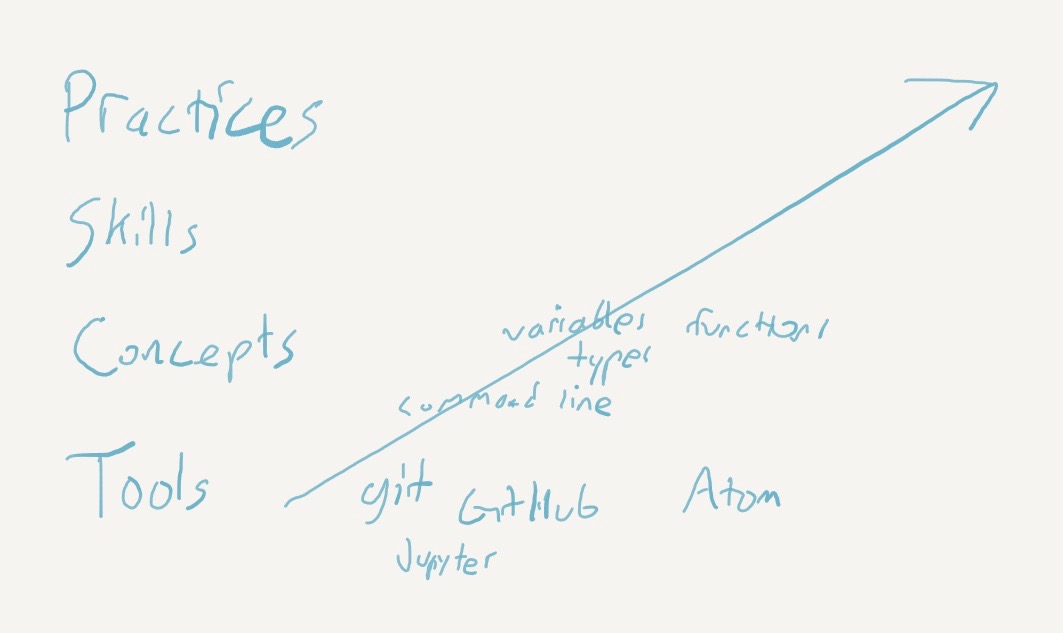 Practices
Skills
Concepts variables functions
types
command line
Tools git GitHub Atom
Jupyter